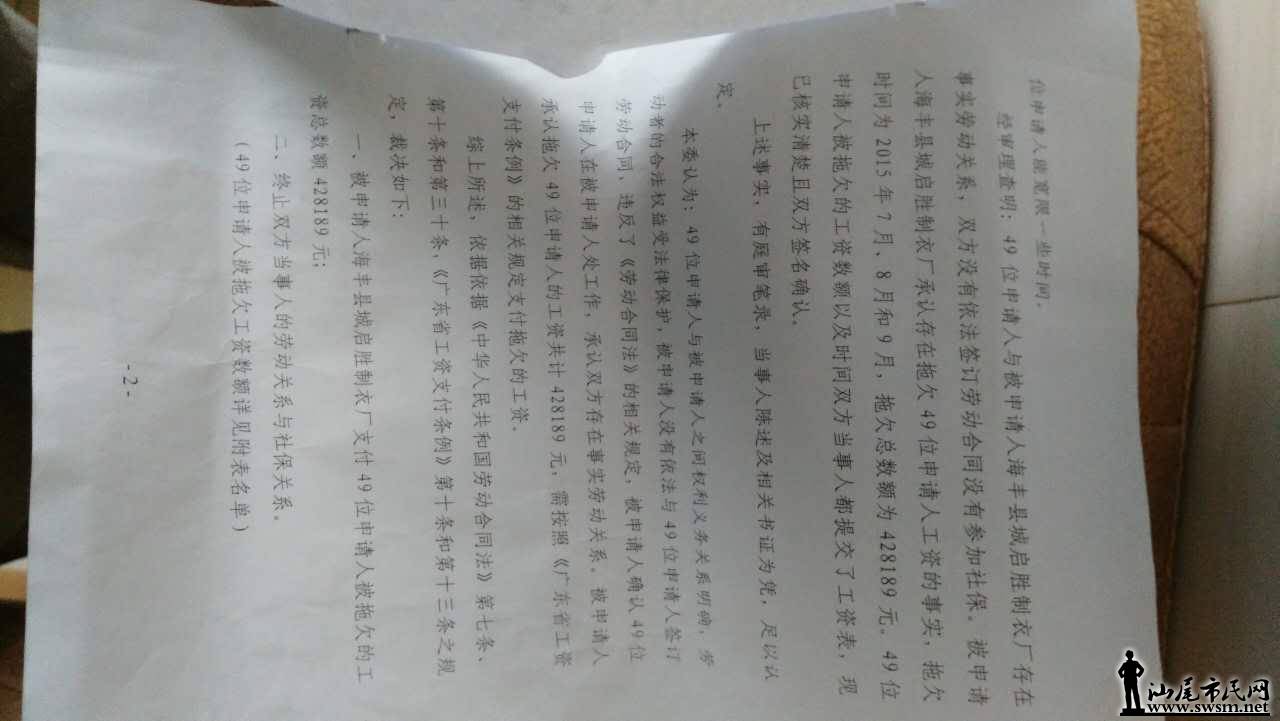 位申请人能宽限一些时间。
经审理查明：49 位申请人与被申请人海丰县城启胜制衣厂存在
事实劳动关系，双方没有依法签订劳动合同没有参加社保。被申请
人海丰县城启胜制衣厂承认存在拖欠 49 位申请人工资的事实，拖欠
时间为 2015 年 7 月、8 月和 9 月，拖欠总数额为 428189 元。49 位
申请人被拖欠的工资数额以及时间双方当事人都提交了工资表，现
已核实清楚且双方签名确认。
上述事实，有庭审笔录，当事人陈述及相关书证为凭，足以认
定。
本委认为：49 位申请人与被申请人之间权利义务关系明确，劳
动者的合法权益受法律保护，被申请人没有依法与 49 位申请人签订
劳动合同，违反了《劳动合同法》的相关规定，被申请人确认 49 位
申请人在被申请人处工作，承认双方存在事实劳动关系。被申请人
承认拖欠 49 位申请人的工资共计 428189 元，需按照《广东省工资
支付条例》的相关规定支付拖欠的工资。
综上所述，依据依据《中华人民共和国劳动合同法》第七条、
第十条和第三十条，《广东省工资支付条例》第十条和第十三条之规
定，裁决如下：
一、被申请人海丰县城启胜制衣厂支付 49 位申请人被拖欠的工
资总数额 428189 元；
二、终止双方当事人的劳动关系与社保关系。
（49 位申请人被拖欠工资数额详见附表名单）
- 2 -
汕尾市民网
www.swsm.net